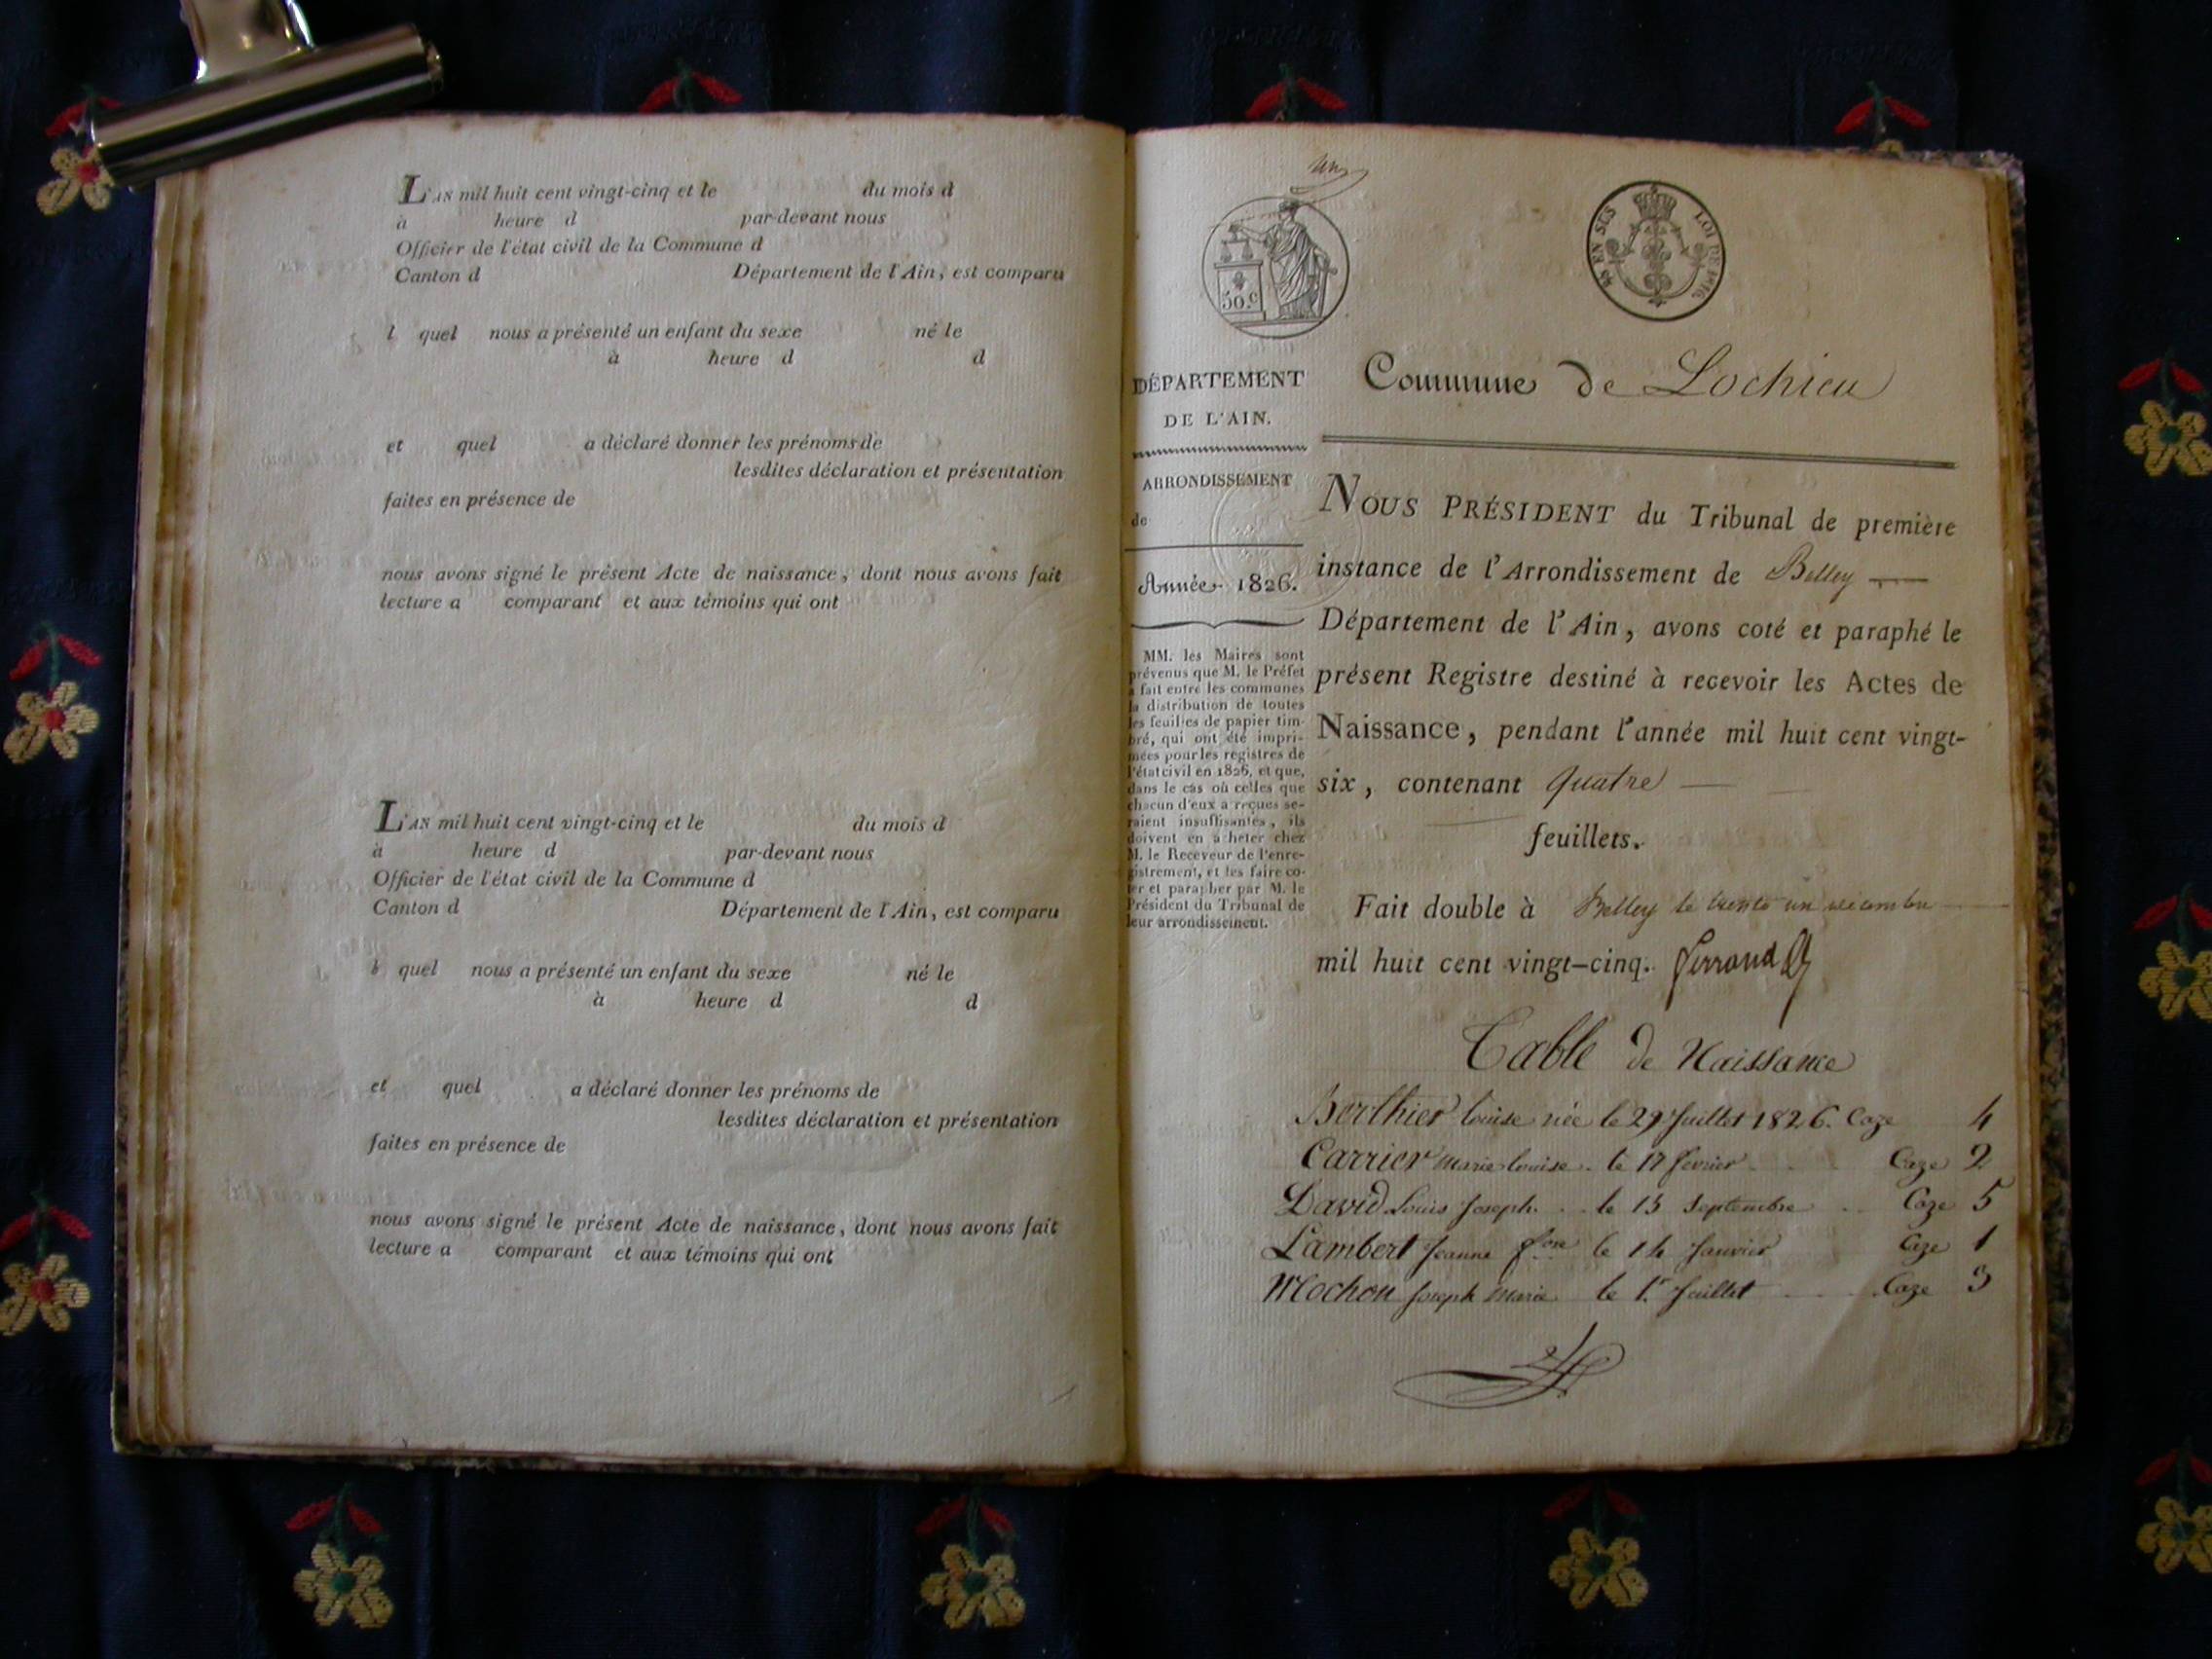 L'AN mil huit cent vingt-cinq et le du mois d
à heure d par-devant nous
Officier de l'état civil de la Commune d
Canton d Département de l'Ain, est comparu
l quel nous a présenté un enfant du sexe né le
à heure d d
et quel a déclaré donner les prénoms de
lesdites déclaration et présentation
faites en présence de
nous avons signé le présent Acte de naissance, dont nous avons fait
lecture a comparant et aux témoins qui ont
L'AN mil huit cent vingt-cinq et le du mois d
à heure d par-devant nous
Officier de l'état civil de la Commune d
Canton d Département de l'Ain, est comparu
l quel nous a présenté un enfant du sexe né le
à heure d d
et quel a déclaré donner les prénoms de
lesdites déclaration et présentation
faites en présence de
nous avons signé le présent Acte de naissance, dont nous avons fait
lecture a comparant et aux témoins qui ont
un
50.c
EN SUS LOI DE 1816.
DÉPARTEMENT
DE L'AIN.
ARRONDISSEMENT
de
Année 1826.
MM. les Maires sont
prévenus que M. le Préfet
a fait entre les communes
la distribution de toutes
les feuilles de papier tim-
bré, qui ont été impri-
mées pour les registres de
l'état civil en 1826, et que,
dans le cas où celles que
chacun d'eux a reçues se-
raient insuffisantes, ils
doivent en acheter chez
M. le Receveur de l'enre-
gistrement, et les faire co-
ter et parapher par M. le
Président du Tribunal de
leur arrondissement.
Commune de Lochieu
NOUS PRÉSIDENT du Tribunal de première
instance de l'Arrondissement de Belley
Département de l'Ain, avons coté et paraphé le
présent Registre destiné à recevoir les Actes de
Naissance, pendant l'année mil huit cent vingt-
six, contenant quatre
feuillets.
Fait double à Belley le trente un décembre
mil huit cent vingt-cinq. Ferrand
Table de Naissance
Berthier louise née le 29 Juillet 1826. Caze 4
Carrier marie louise le 17 fevrier Caze 2
David Louis Joseph. le 15 Septembre Caze 5
Lambert Jeanne le 14 Janvier Caze 1
Mochon Joseph marie le 1.r Juillet Caze 3